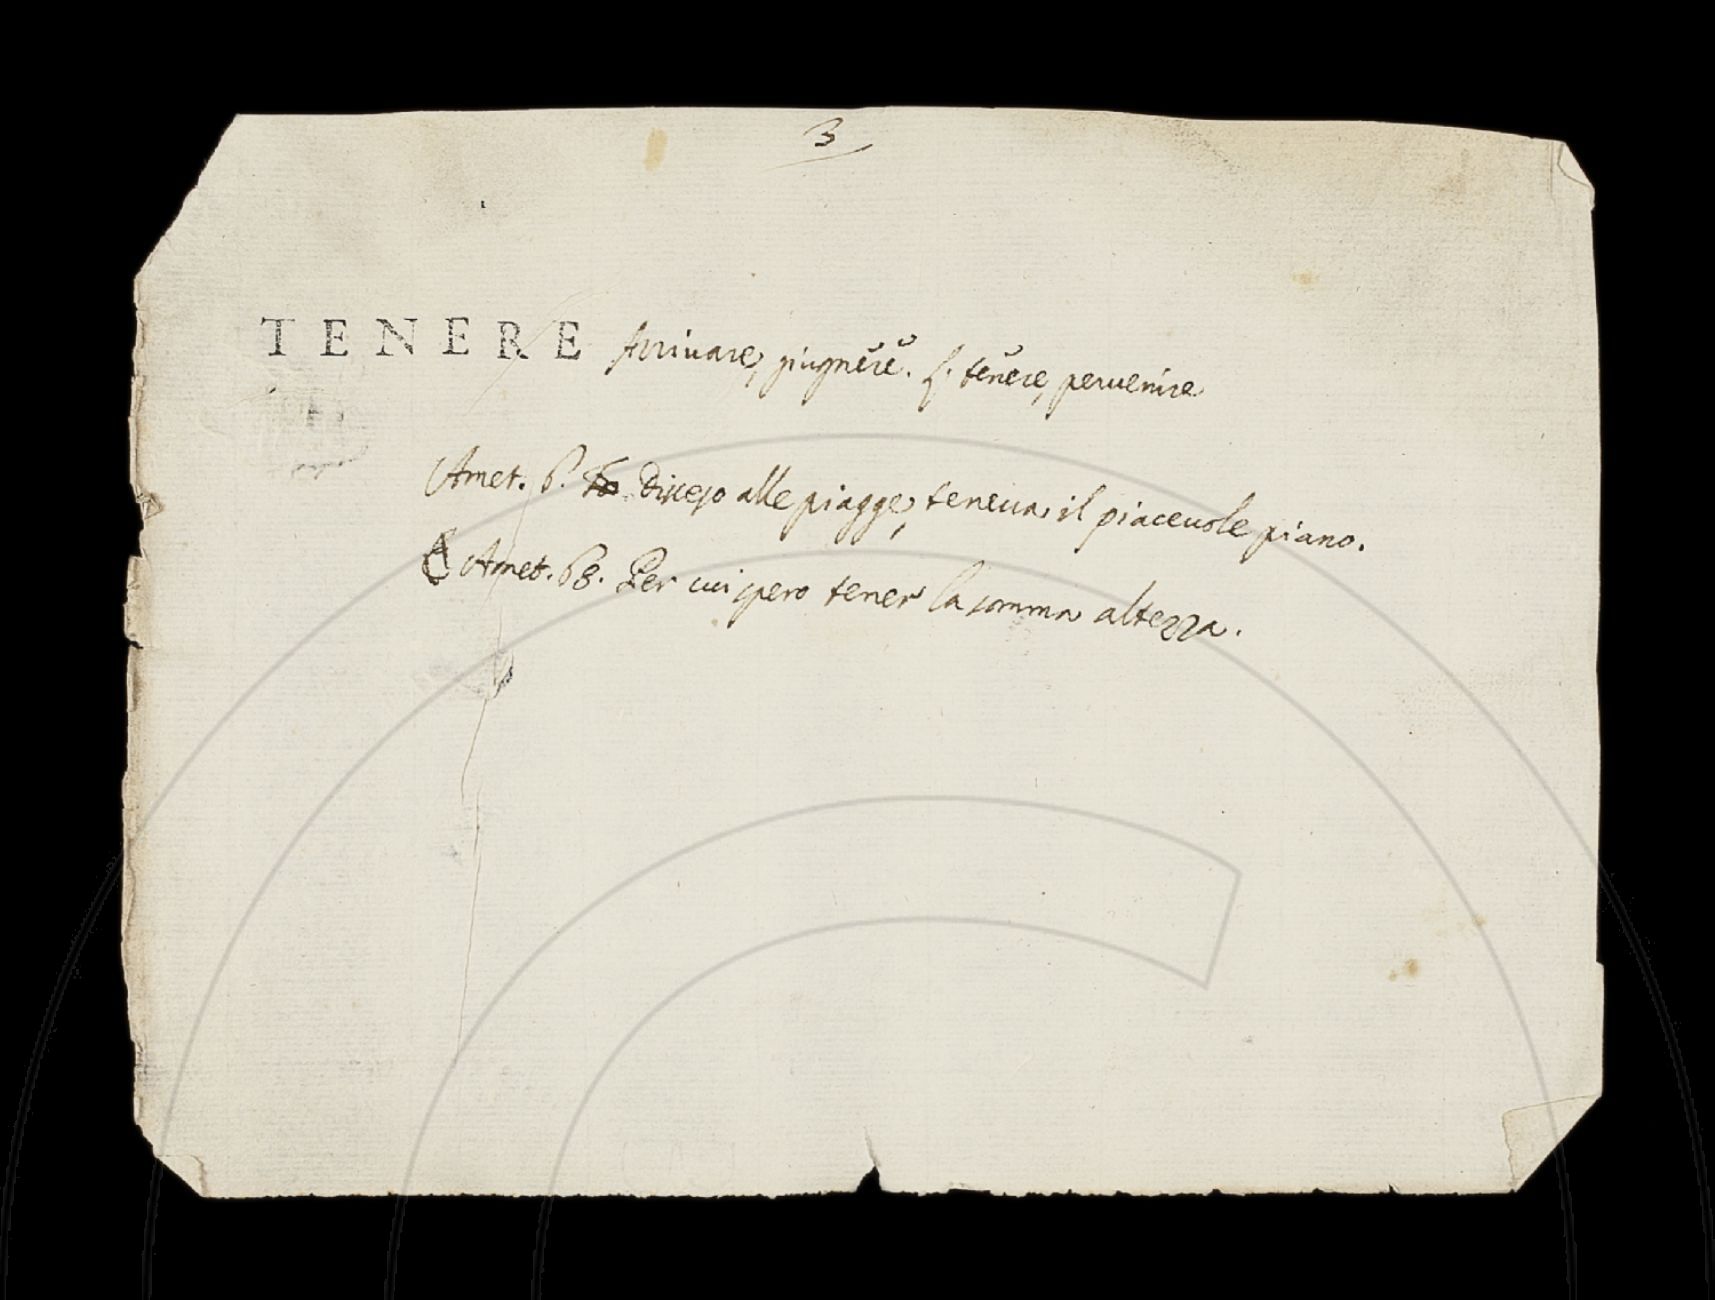 3
TENERE Arriuare, giugnere. L. tenere, peruenire
Amet. 6. Disceso alle piagge, teneua il piaceuole piano.
Amet. 68. Per cui spero tener la somma altezza.